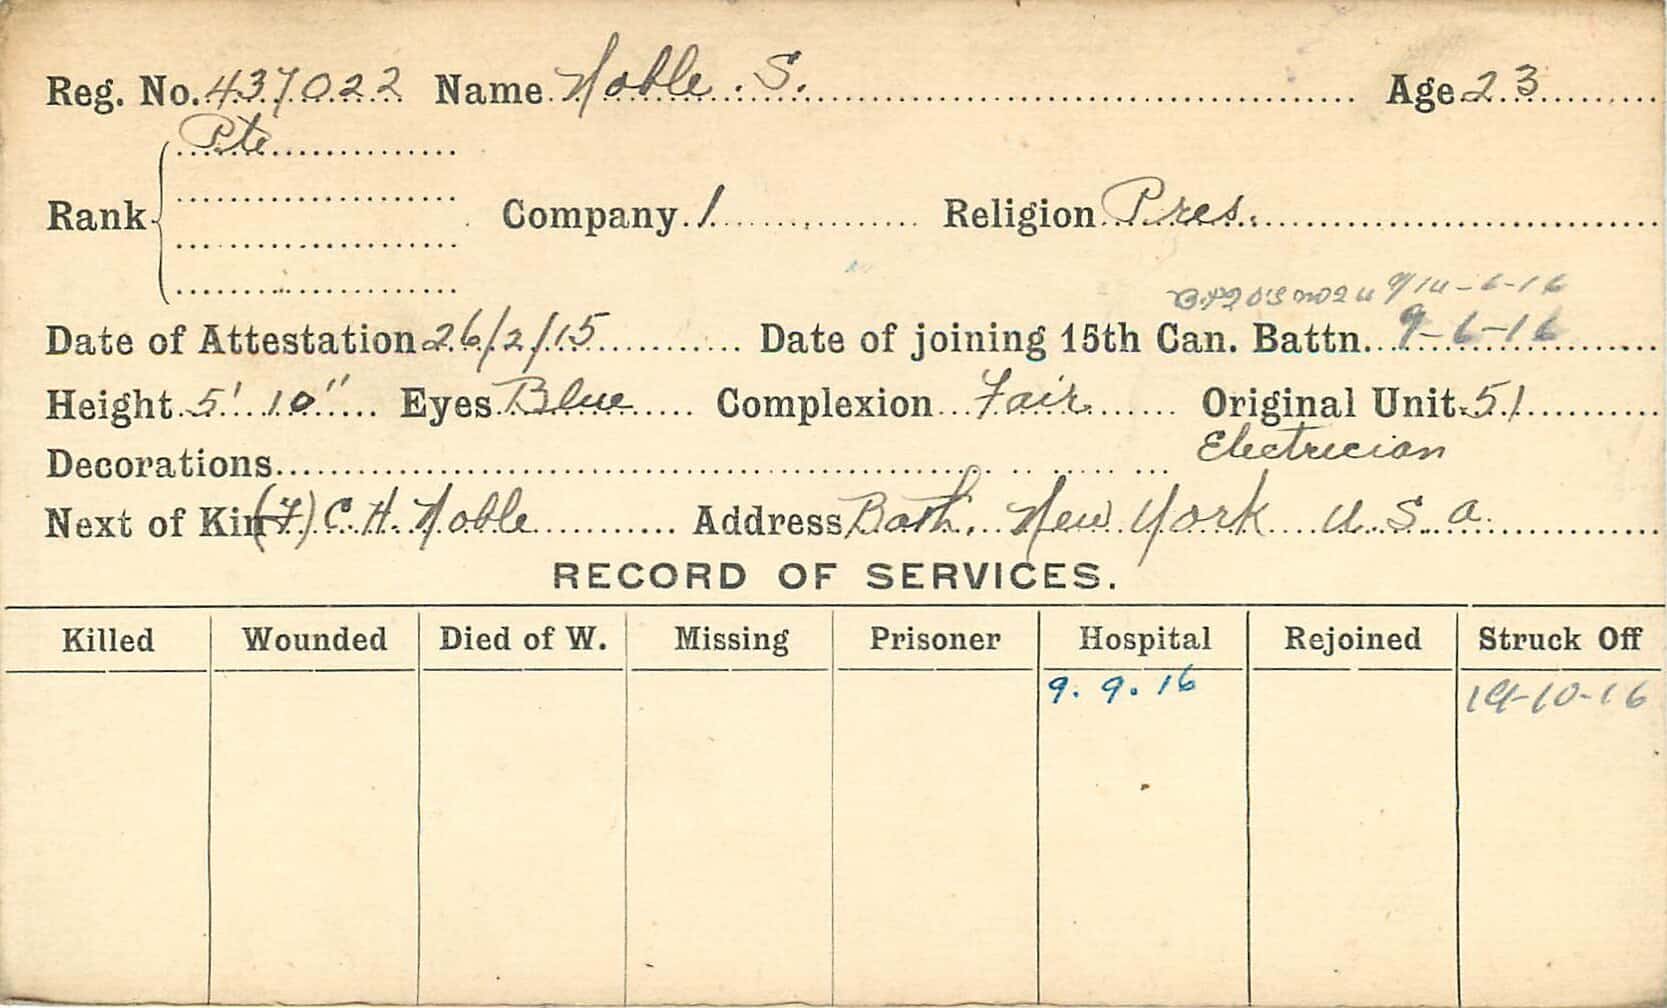 Reg. No. 437022 Name Noble. S. Age 23
Pte
Rank Company 1 Religion Pres.
9/14-6-16
Date of Attestation 26/2/15 Date of joining 15th Can. Battn. 9-6-16
Height 5' 10" Eyes Blue Complexion Fair Original Unit 51
Decorations Electrician
Next of Kin (F) C. H. Noble Address Bath, New York U. S. A.
RECORD OF SERVICES.
Killed Wounded Died of W. Missing Prisoner Hospital Rejoined Struck Off
9. 9. 16 19-10-16